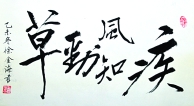 疾風知勁草
乙未冬徐金海書